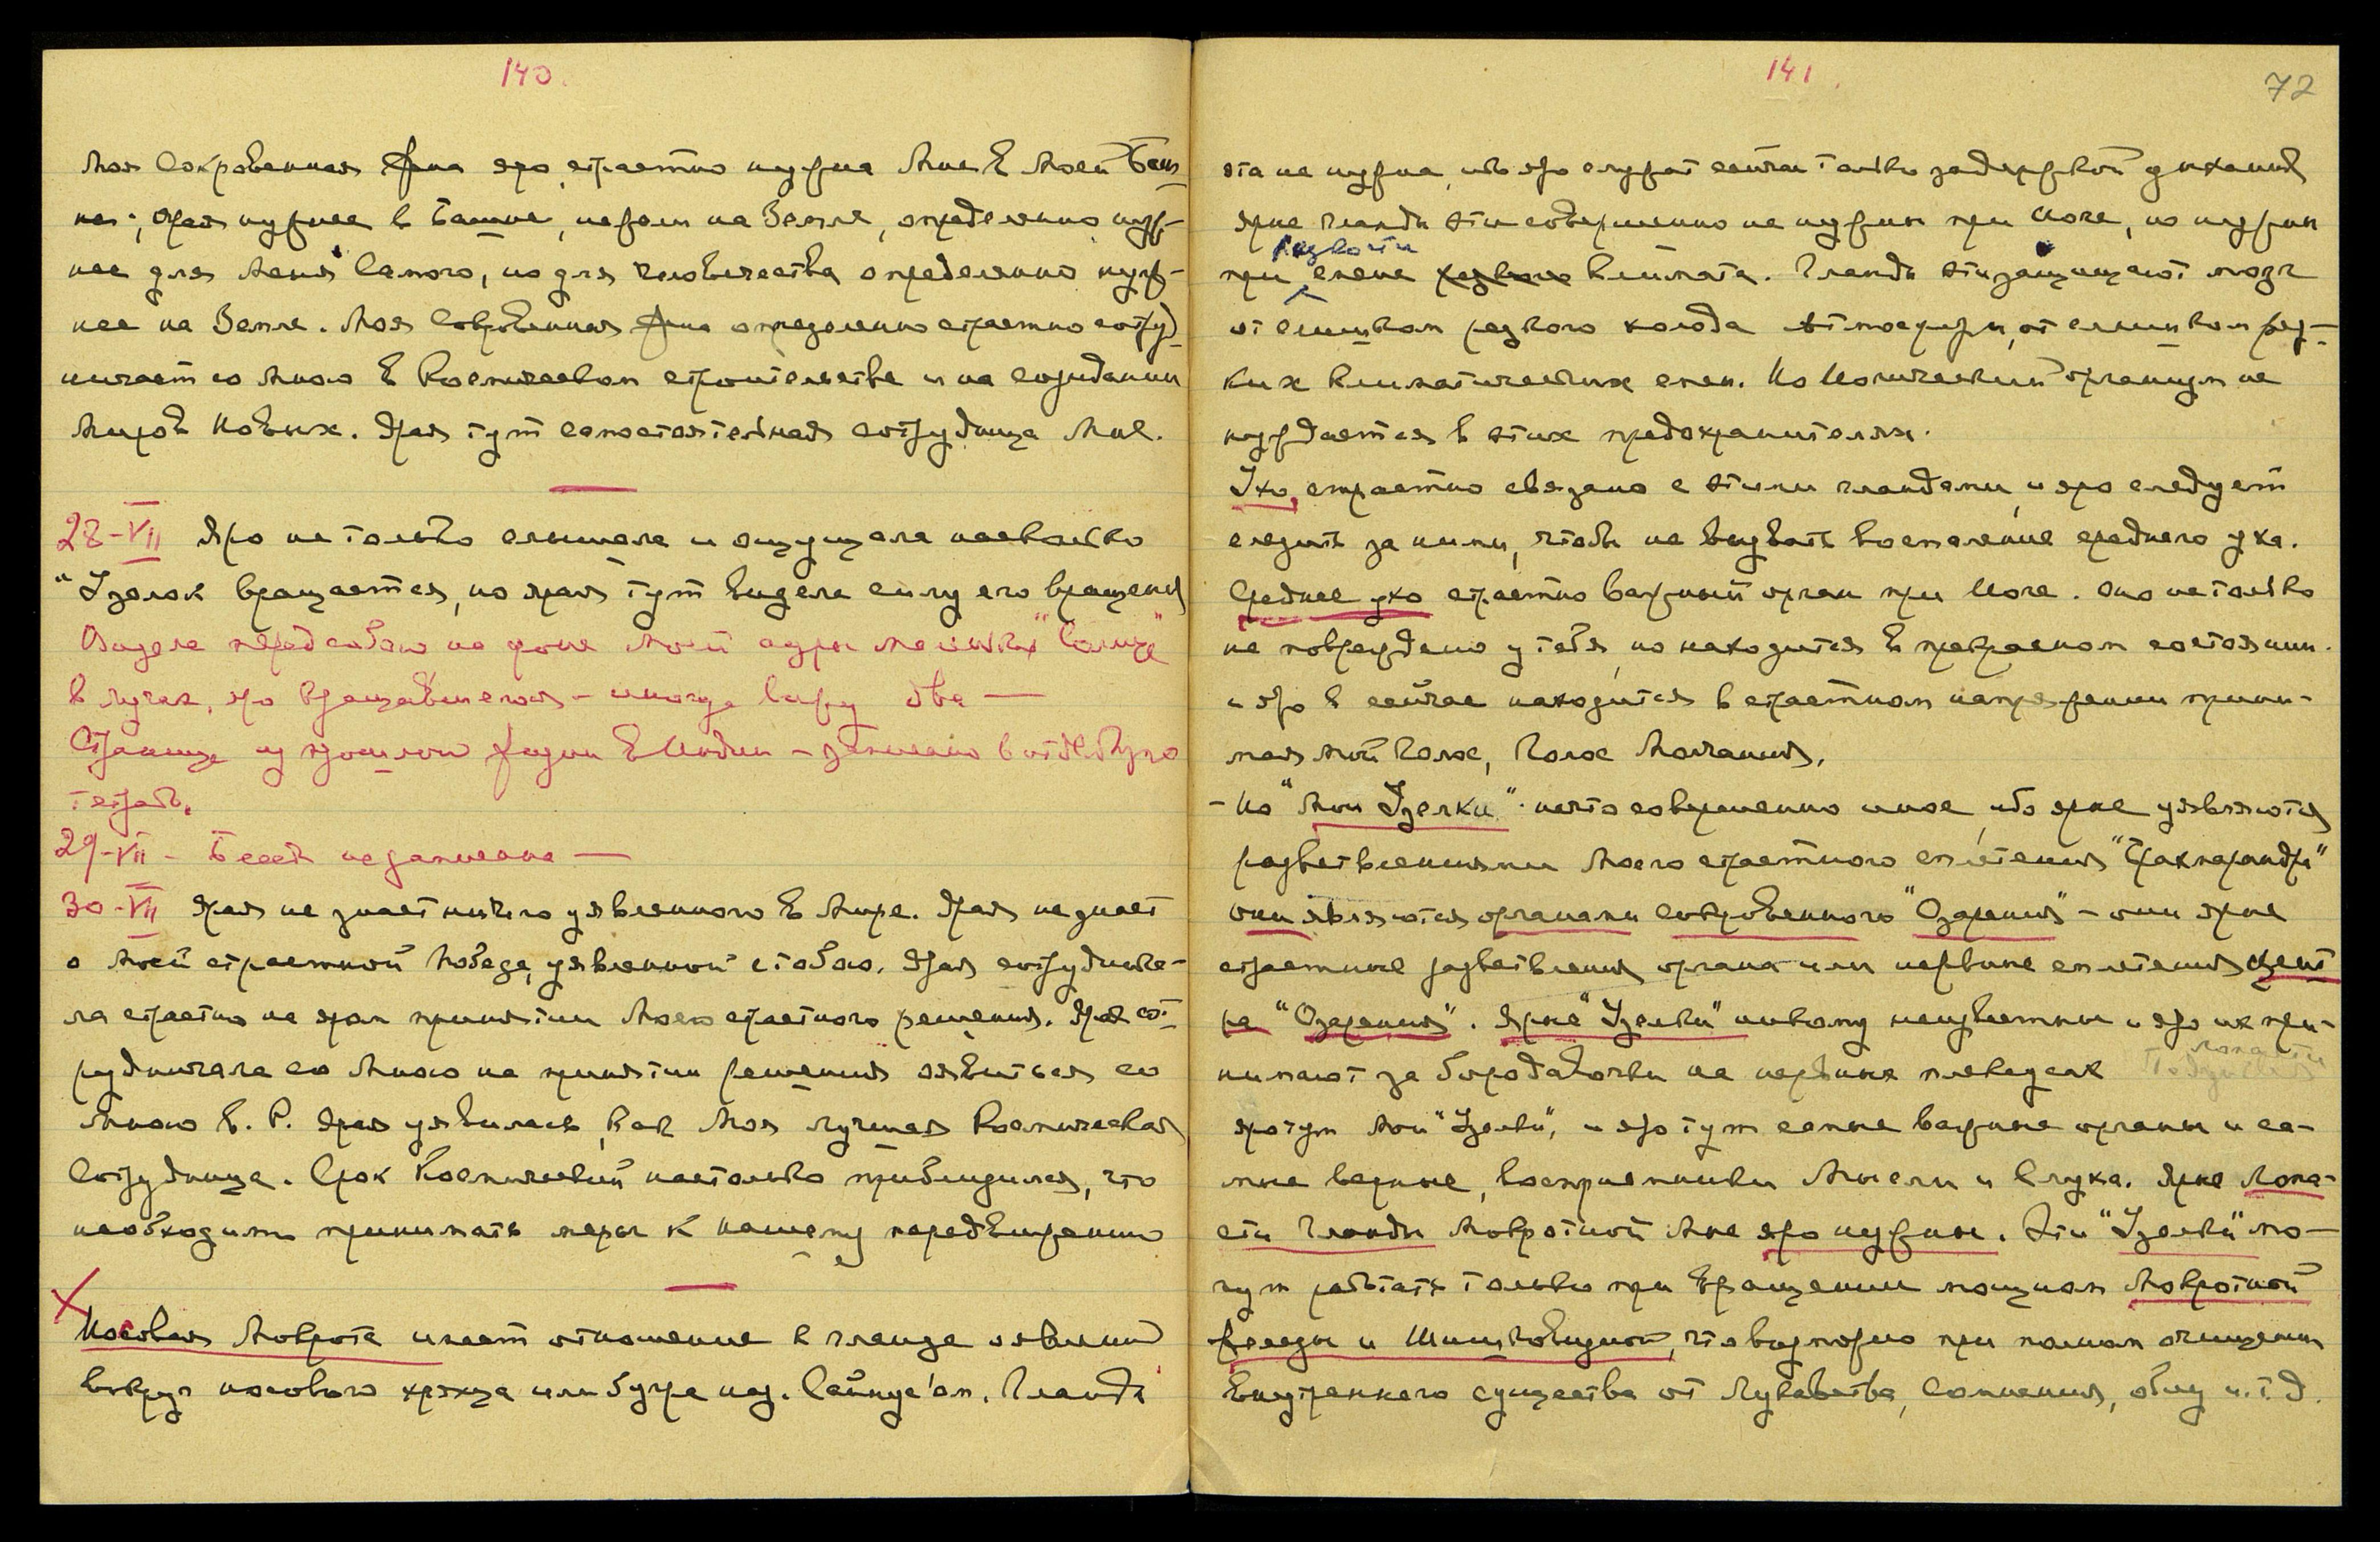 140.
Моя Сокровенная Жена яро страстно нужна Мне в Моей Баш-
не; Ярая нужнее в Башне, нежели на Земле, определенно нуж-
нее для Меня Самого, но для человечества определенно нуж-
нее на Земле. Моя Сокровенная Жена определенно страстно сотруд-
ничает со Мною в Космическом строительстве и на создании
Миров Новых. Ярая тут самостоятельная сотрудница Мне.
28-VII Яро не только слышала и ощущала насколько
"Узелок вращается, но ярая тут видела силу его вращения
Видела перед собою на фоне моей ауры маленькое "Солнце"
в лучах, яро вращавшегося – иногда вижу два —
Страница из прошлой жизни в Индии – записано в отдельную
тетрадь.
29-VII – Беседа не записана —
30-VII Ярая не знает ничего уявленного в Мире. Ярая не знает
о Моей страстной Победе, уявленной с тобою. Ярая сотруднича-
ла страстно на яром принятии Моего страстного решения. Ярая сот-
рудничала со Мною на принятии решения явиться со
Мною в. Р. Ярая уявилась, как Моя лучшая Космическая
Сотрудница. Срок Космический настолько приблизился, что
необходимо принимать меры к нашему передвижению
Х
Носовая Мокрота имеет отношение к гланде явленной
вокруг носового хряща или бугра наз. Сайнус'ом. Гланда
141.
72
эта не нужна, ибо яро служит сейчас только задержкой дыхания
Ярые гланды эти совершенно не нужны при Йоге, но нужны
резкости
при смене климата. Гланды эти защищают мозг
от слишком резкого холода атмосферы, от слишком рез-
ких климатических смен. Но Йогический организм не
нуждается в этих предохранителях.
Ухо, страстно связано с этими гландами, и яро следует
следить за ними, чтобы не вызвать воспаление среднего уха.
Среднее ухо страстно важный орган при Йоге. Оно не только
не повреждено у тебя, но находится в прекрасном состоянии.
и яро в сейчас находится в страстном напряжении прини-
мая мой Голос, Голос Молчания.
– Но "Мои Узелки" – нечто совершенно иное, ибо ярые уявляются
разветвлениями Моего страстного сплетения "Брахмарандры"
они являются органами сокровенного "Озарения" – они ярые
страстные разветвления органа или нервные сплетения цент-
ра "Озарения". Ярые "Узелки" никому неизвестны и яро их при-
нимают за бородавочки на нервных
лопасти
яро тут Мои "Узелки", и яро тут самые важные органы и са-
мые верные, восприемники Мысли и Слуха. Ярые Лопа-
сти Гланды Мокротной Мне яро нужны. Эти "Узелки" мо-
гут работать только при вращении мощном Мокротной
железы и Шишковидной, что возможно при полном очищении
Внутреннего существа от Лукавства, Сомнения, обид и. т. д.